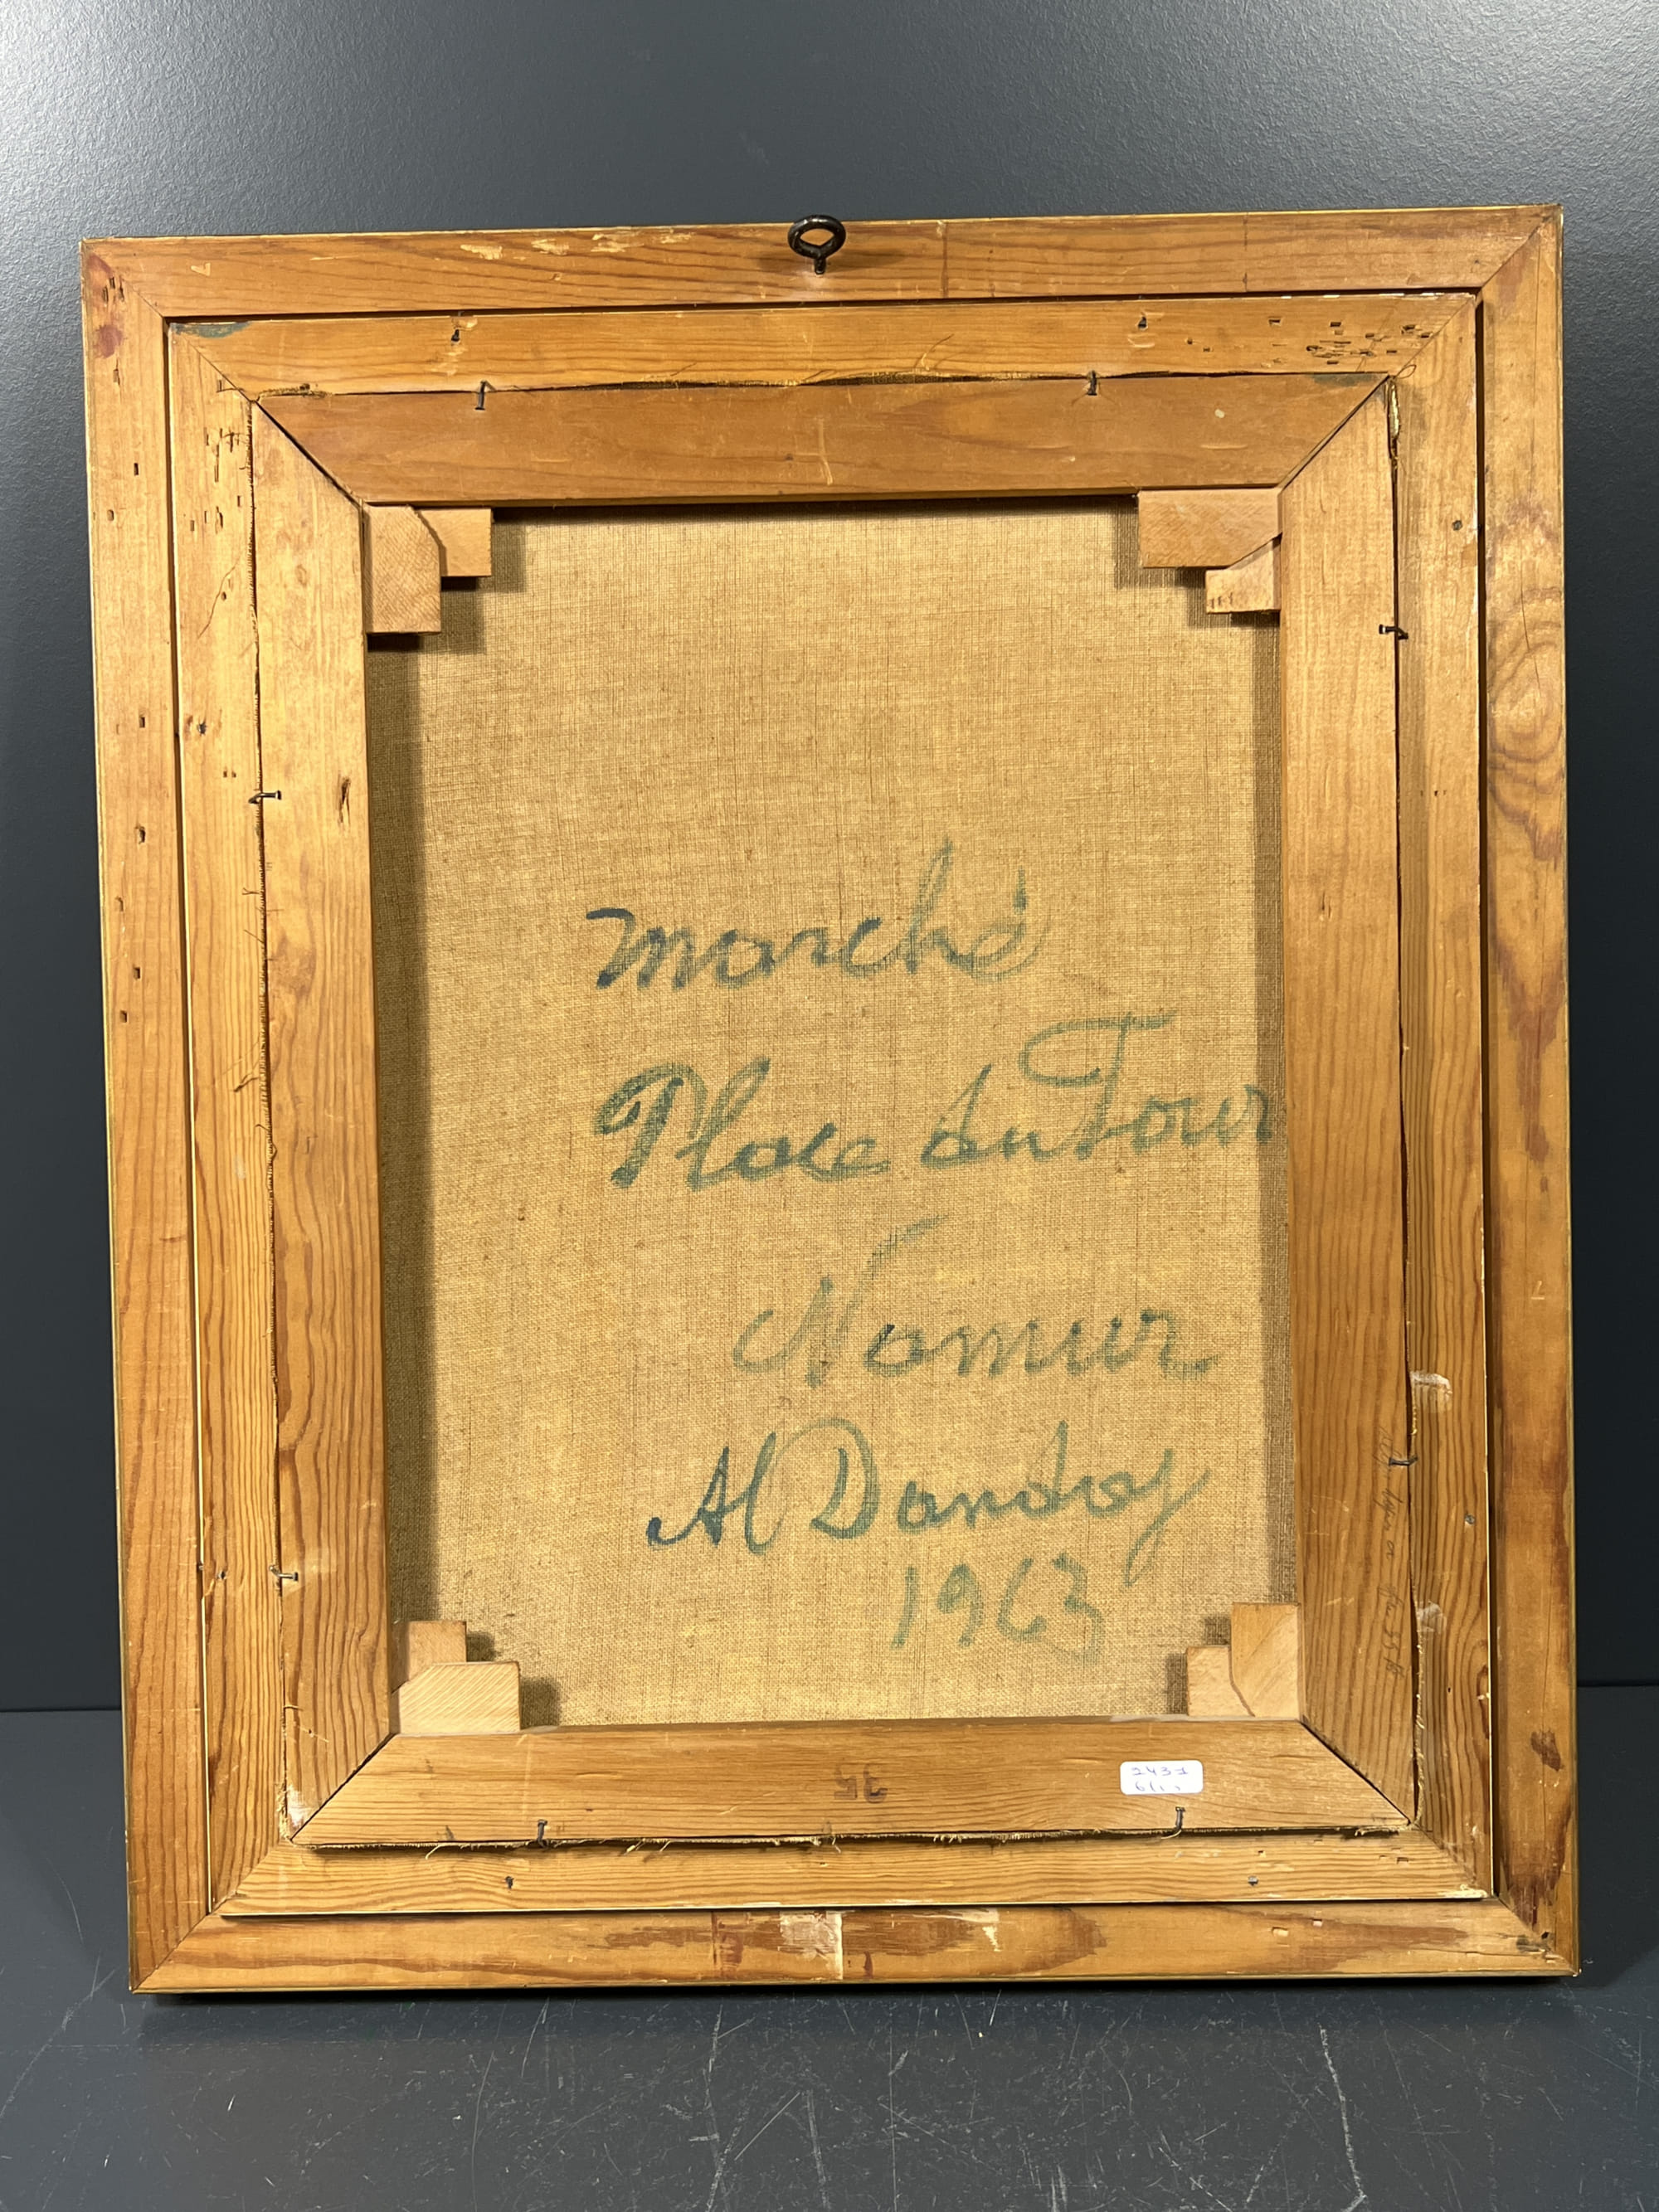 Marché
Place du Four
Namur
Al Dandoy
1963
35
2431